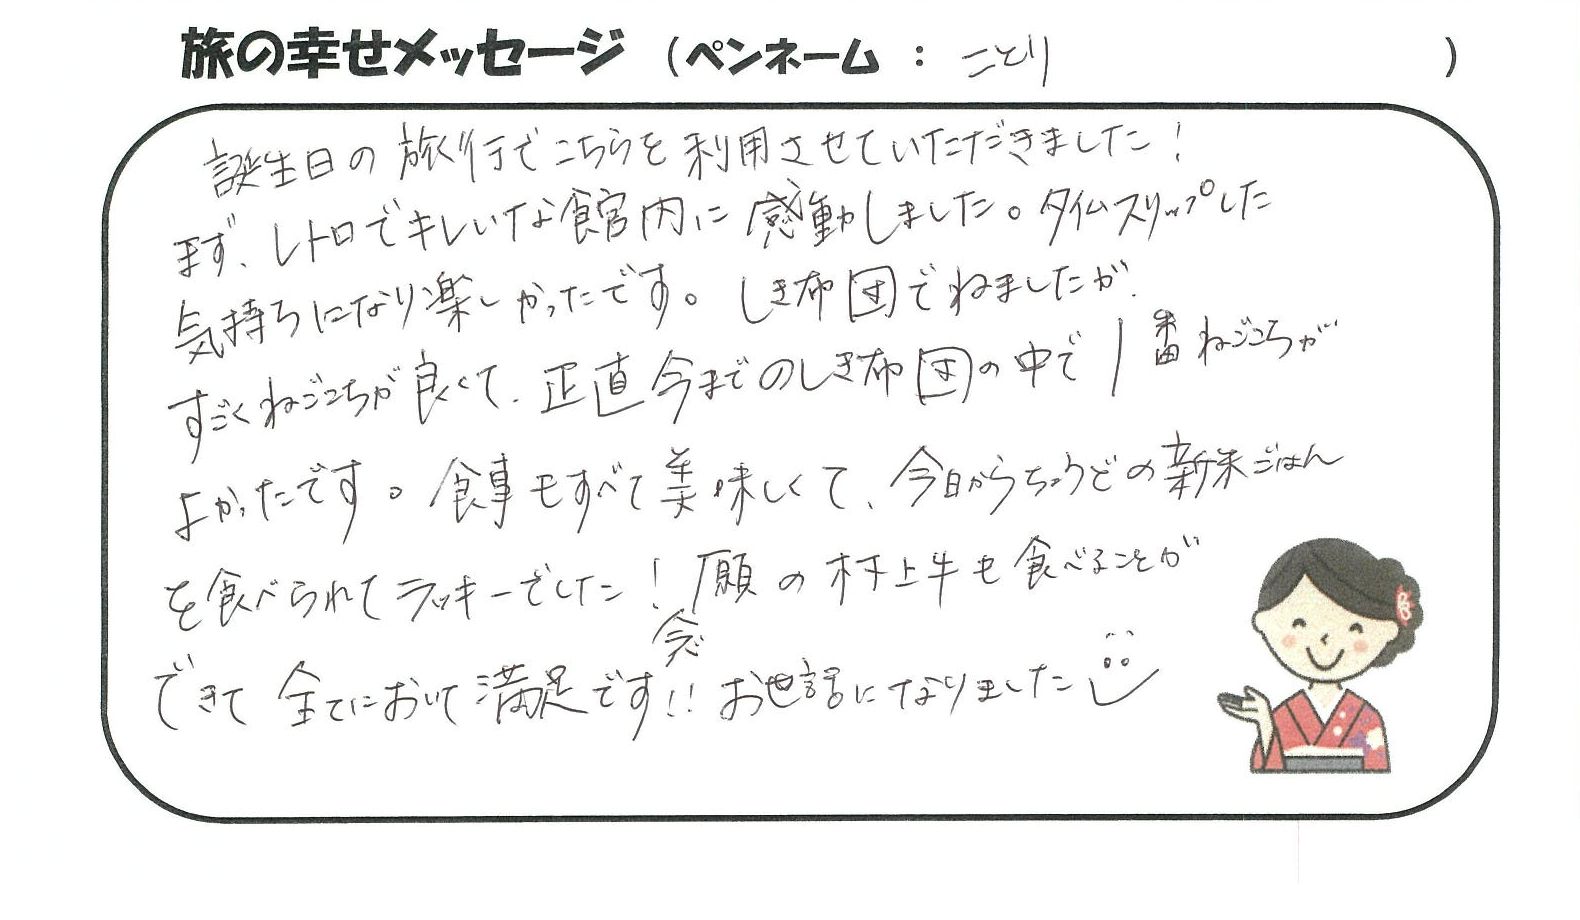 旅の幸せメッセージ (ペンネーム : ことり )
誕生日の旅行でこちらを利用させていただきました!
まず、レトロでキレイな館内に感動しました。タイムスリップした
気持ちになり楽しかったです。しき布団でねましたが、
すごくねごこちが良くて、正直今までのしき布団の中で1番ねごこちが
よかったです。食事もすべて美味しくて、今日からちょうどの新米ごはん
を食べられてラッキーでした!念願の村上牛も食べることが
できて全てにおいて満足です!!お世話になりました